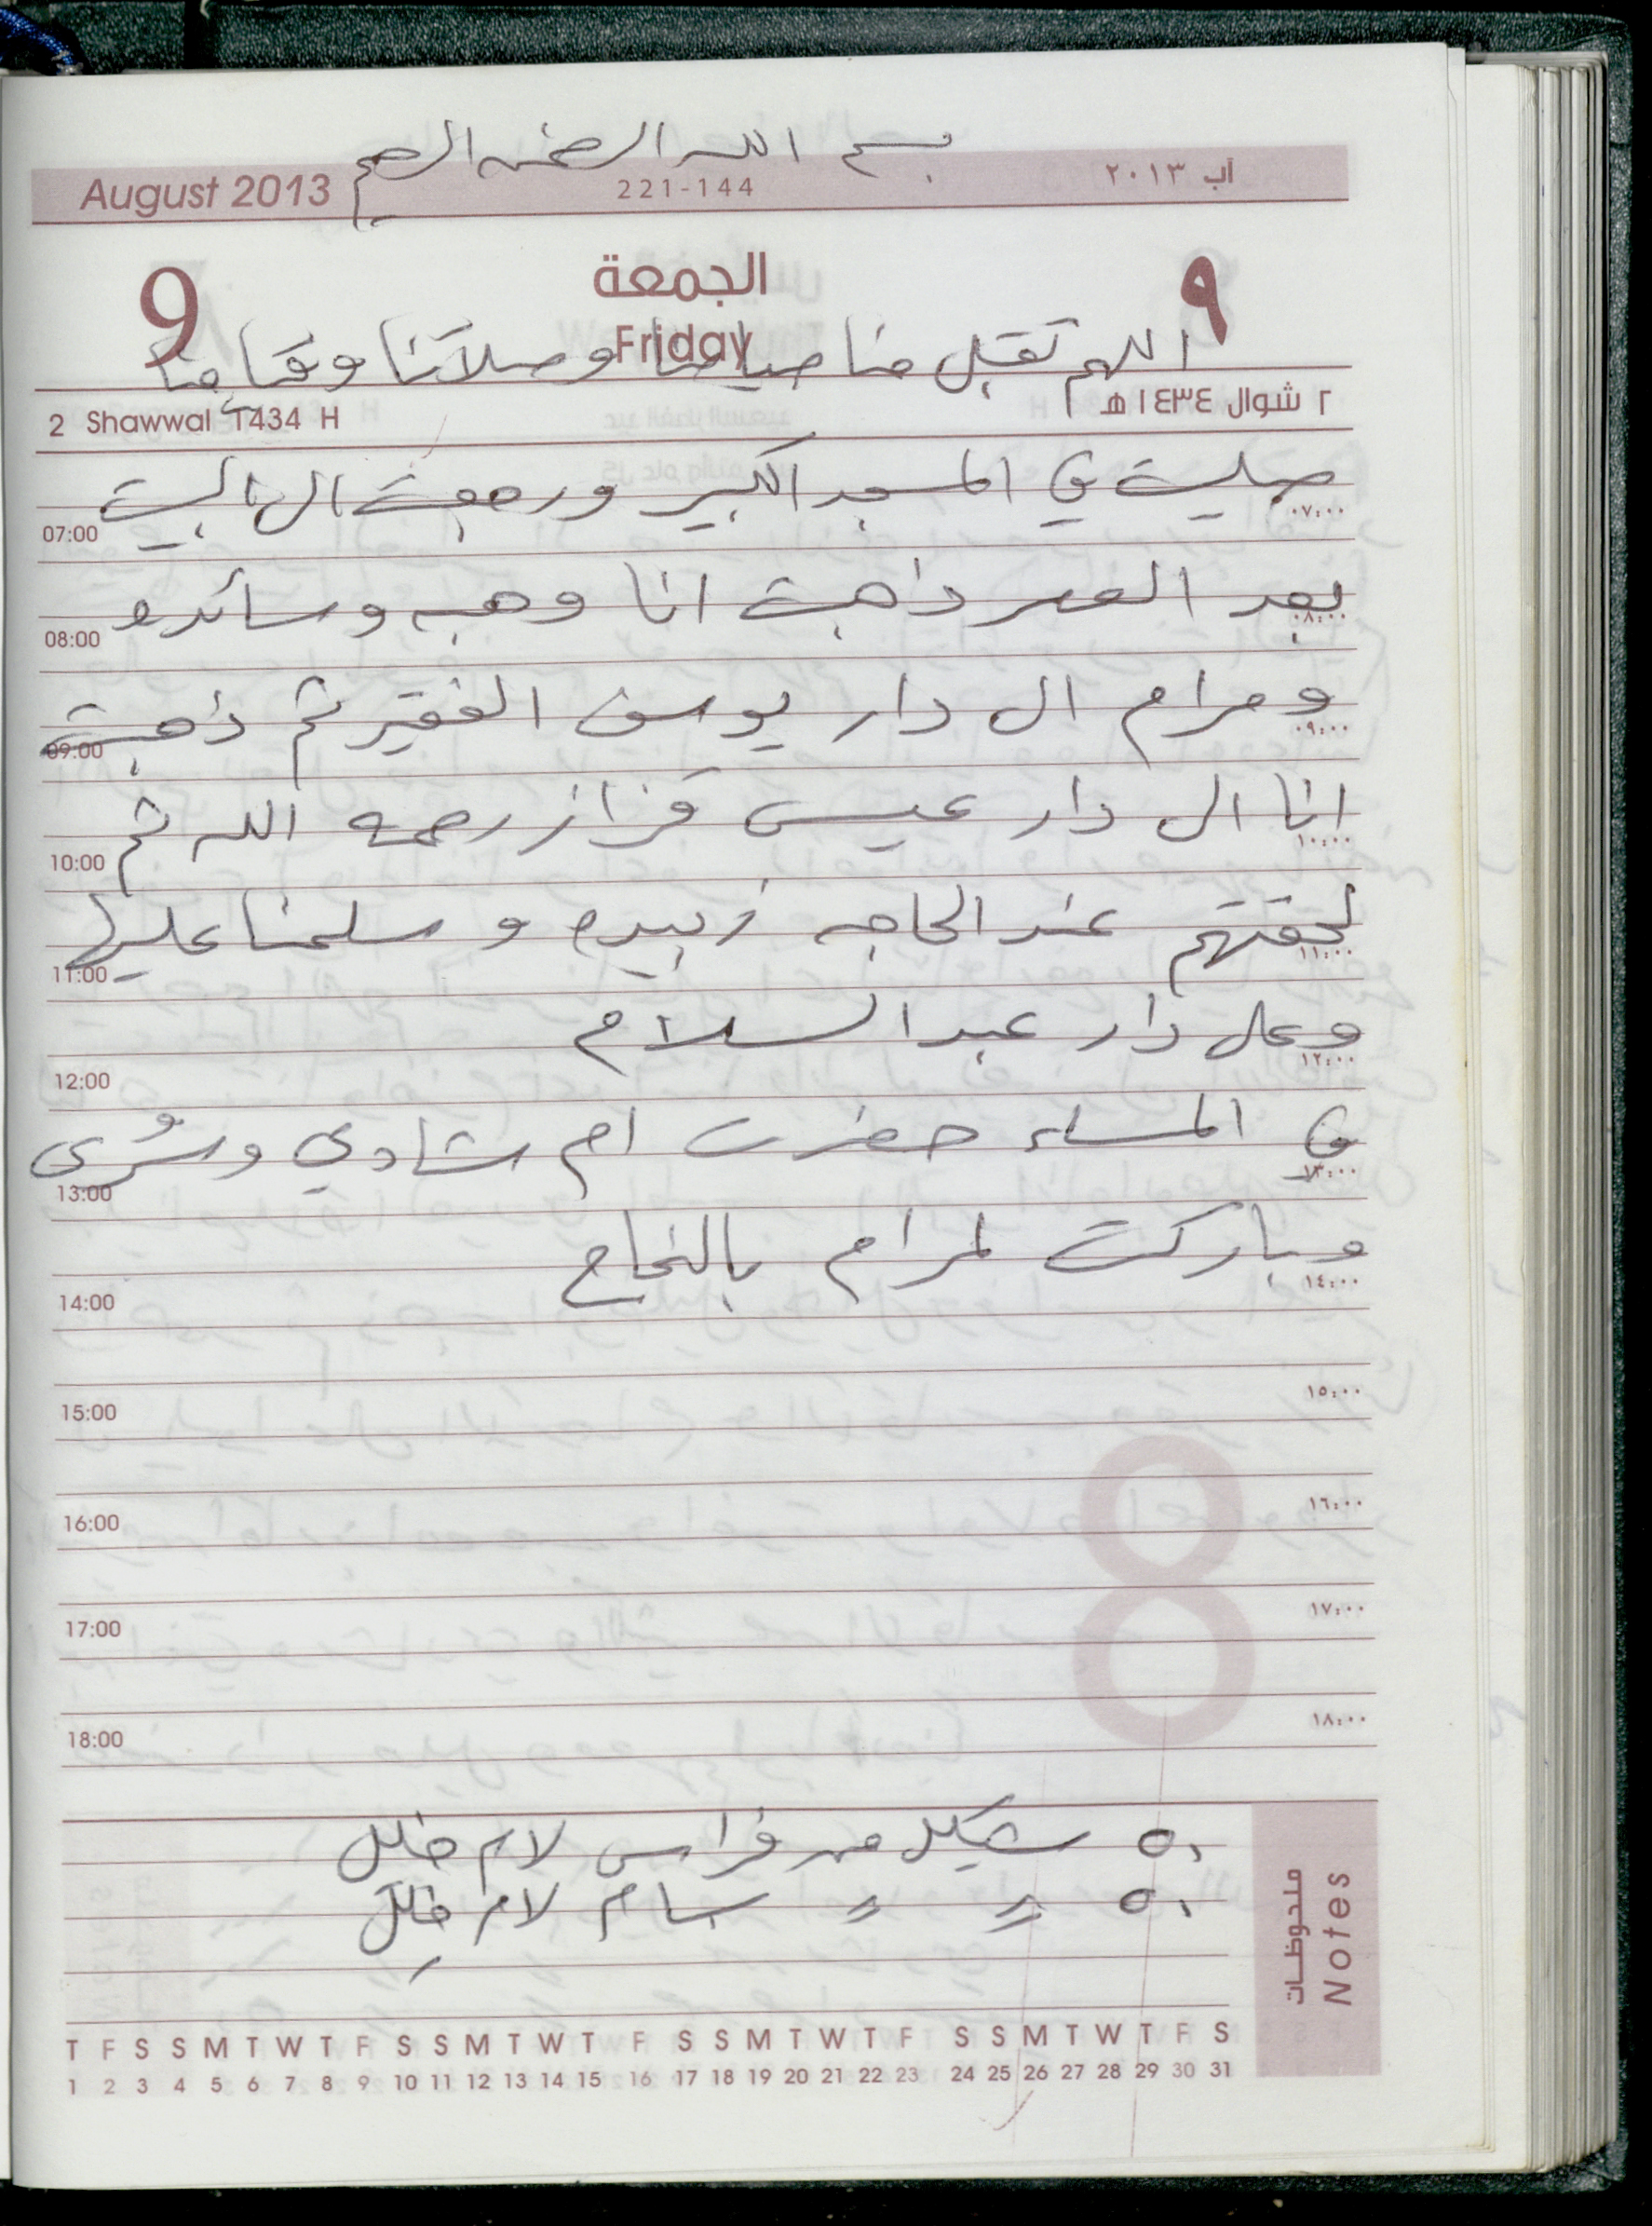 بسم الله الرحمن الرحيم
August 2013 221-144 آب ٢٠١٣
9 الجمعة ٩
Friday
اللهم تقبل منا صيامنا وصلاتنا وقيامنا
2 Shawwal 1434 H ٢ شوال ١٤٣٤ هـ
صليت في المسجد الكبير ورجعت الى البيت
07:00 ٠٧:٠٠
بعد العصر ذاهبت انا وهبه وسائده
08:00 ٠٨:٠٠
ومرام الى دار يوسف الفقير ثم ذهبت
09:00 ٠٩:٠٠
انا الى دار عيسى قزاز رحمه الله ثم
10:00 ١٠:٠٠
لحقتهم عند الحاجه زبيده و سلمنا عليها
11:00 ١١:٠٠
وعلى دار عبد السلام
12:00 ١٢:٠٠
في المساء حضرت ام شادي ويسرى
13:00 ١٣:٠٠
وباركت لمرام بالنجاح
14:00 ١٤:٠٠
15:00 ١٥:٠٠
16:00 ١٦:٠٠
17:00 ١٧:٠٠
18:00 ١٨:٠٠
٥٠ شيكل من فراس لام خليل
٥٠ = = سام لام خليل
ملحوظات
Notes
T F S S M T W T F S S M T W T F S S M T W T F S S M T W T F S
1 2 3 4 5 6 7 8 9 10 11 12 13 14 15 16 17 18 19 20 21 22 23 24 25 26 27 28 29 30 31